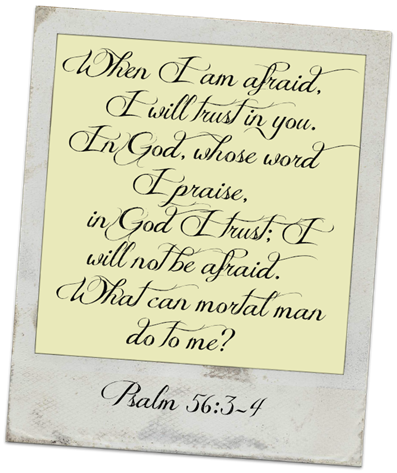 When I am afraid,
I will trust in you.
In God, whose word
I praise,
in God I trust; I
will not be afraid.
What can mortal man
do to me?
Psalm 56:3~4